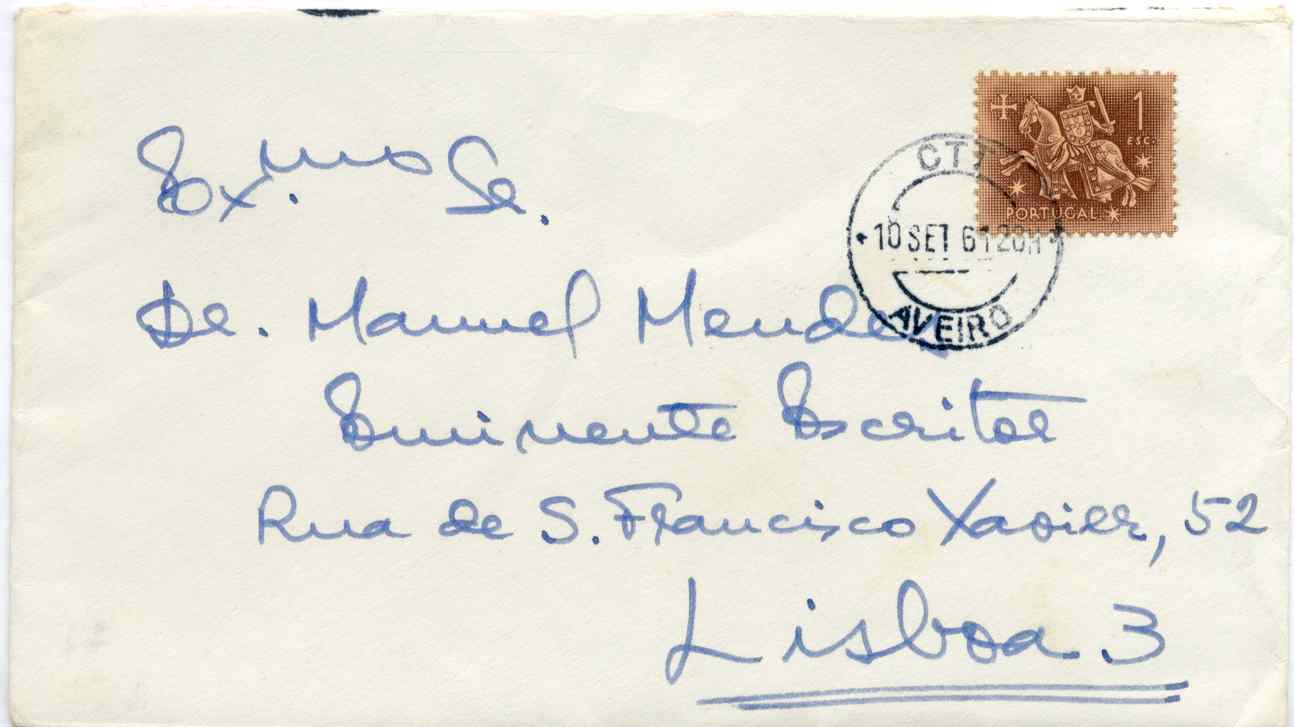 1
ESC.
PORTUGAL
CTT
10 SET 61 20H
AVEIRO
Ex.mo Sr.
Dr. Manuel Mendes
Eminente Escritor
Rua de S. Francisco Xavier, 52
Lisboa 3